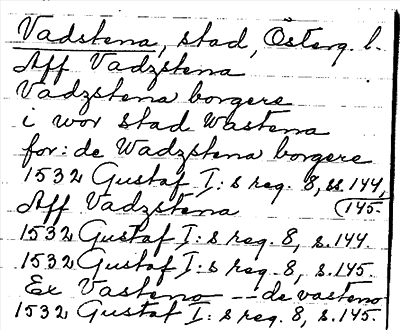 Vadstena, stad, Österg. l.
Aff Vadzstena
Vadzstena borgere
i wor stad Wastena
for: de Wadzstena borgere
1532 Gustaf I:s reg. 8, ss. 144,
Aff Vadzstena 145.
1532 Gustaf I:s reg. 8, s. 144.
1532 Gustaf I:s reg. 8, s. 145.
Ex Vasteno -- de vasteno
1532 Gustaf I:s reg. 8, s. 145.